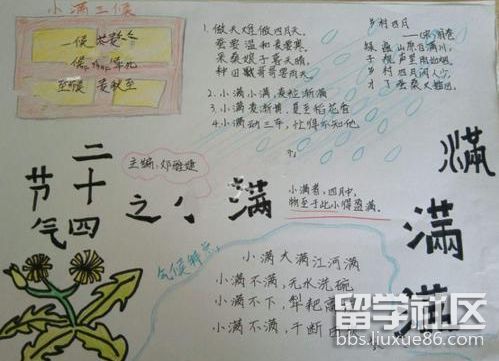 小满三候
一候苦菜
至候 麦秋至
1. 做天难做四月天,
蚕要温和麦要寒。
采桑娘子要天晴,
种田
2. 小满小满,麦粒渐满
3. 小满麦渐黄,夏至稻花香
4. 小满动三车,忙得不知他
乡村四月
绿遍山原白满川,
子规声里雨如烟。
乡村四月闲人少,
才了蚕桑又插田。
主编:邓
二十四
节气
之
小
满
小满者,四月中,
物至于此小得盈满。
满
满
满
气候特点:
小满大满江河满
小满不满,无水洗碗
小满不下,犁耙高
小满不满,干断
留学社区
bbs.liuxue86.com